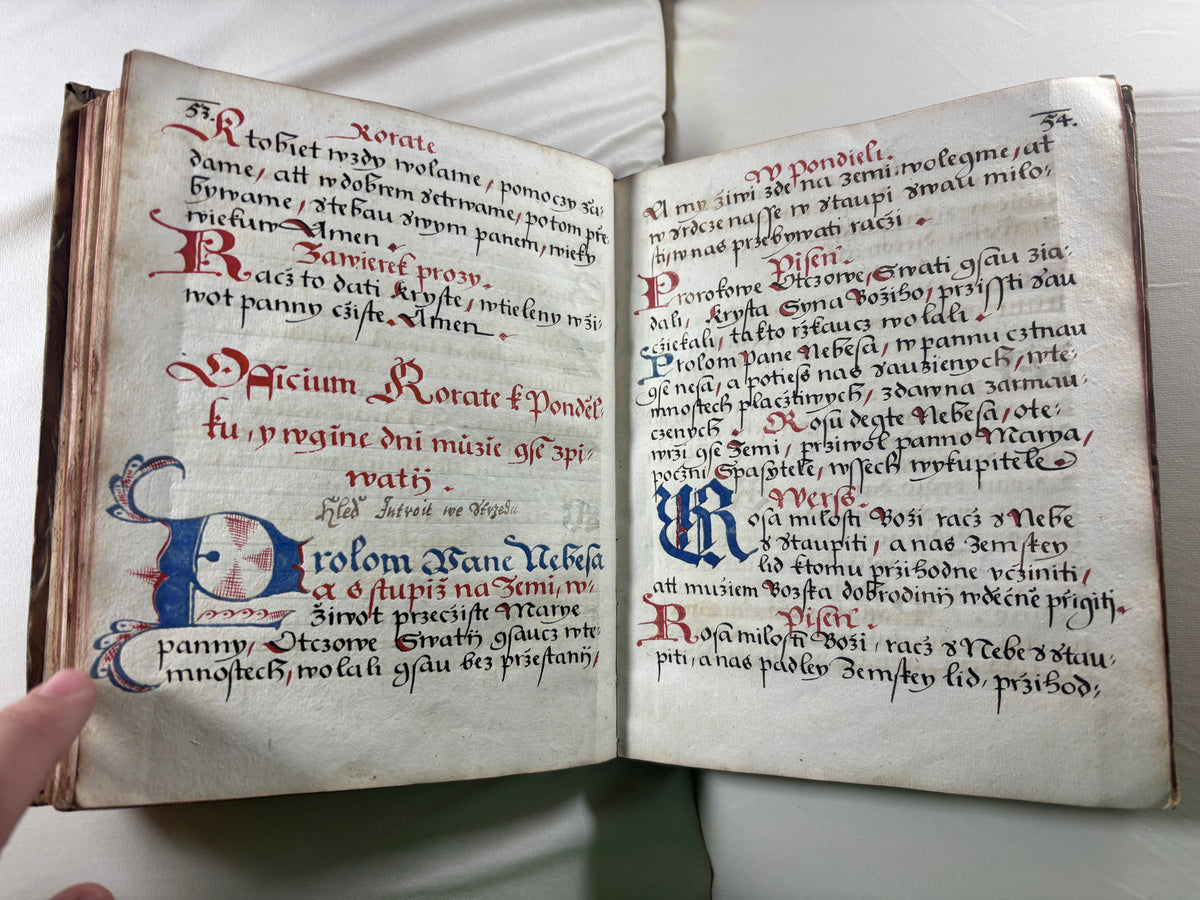 53.
Rorate
K tobiet wzdy wolame, pomoczy žá-
dame, att w dobrem setrwame, potom pře-
bywame, s tebau swym panem, wieky
wiekuw Amen.
Zawierek prozy.
Racž to dati Kryste, wtieleny w ži-
wot panny cžiste. Amen
Officium Rorate k Ponděl-
ku, y w gine dni může gse zpi-
watij.
Hled Introit we Strzedu
Prolom Pane Nebesa
a s stupiž na Zemi, w-
život przecžiste Marye
panny, Otczowe Swatij gsaucz wte-
mnostech, wolali gsau bez pržestanij,
54.
W Pondieli.
A my živi zde na zemi wolegme, at
w srdcze nasse w staupi swau milo-
sti, w nas przebywati račži.
Piseň.
Prorokowe Otczowe, Swati gsau žia-
dali, Krysta Syna Božiho, przissti sau
cžiekali, takto ržkaucz wolali.
Prolom Pane Nebesa, w pannu cztnau
gse nesa, a potiess nas saužienych, wte-
mnostech placžtiwych, zdawna zarmau-
czenych. Rosu degte Nebesa, ote-
wrži gse Zemi, prziwol panno Marya,
pocžni Spasytele, wssech wykupitele.
Werss.
Rosa milosti Boži racž s Nebe
s staupiti, a nas Zemskey
lid ktomu pržihodne včžiniti,
att mužiem Božska dobrodinij wděčně přigiti.
Piseň.
Rosa milosti Boži, racž s Nebe s stau-
piti, a nas padley Zemskey lid, pržihod-